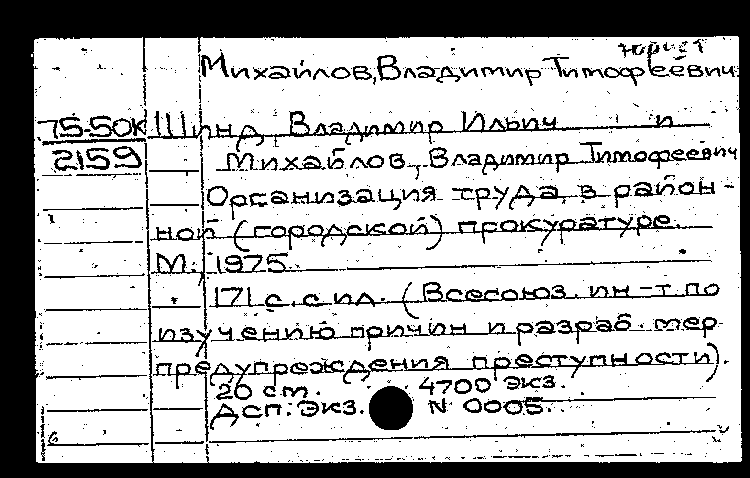 юрист
Михайлов, Владимир Тимофеевич
75-50К Шинд, Владимир Ильич и
2159 Михайлов, Владимир Тимофеевич
Организация труда в район-
ной (городской) прокуратуре.
М., 1975.
171 с. с ил. (Всесоюз. ин-т по
изучению причин и разраб. мер
предупреждения преступности).
20 см. 4700 экз.
ДСП. Экз. N 0005.
6